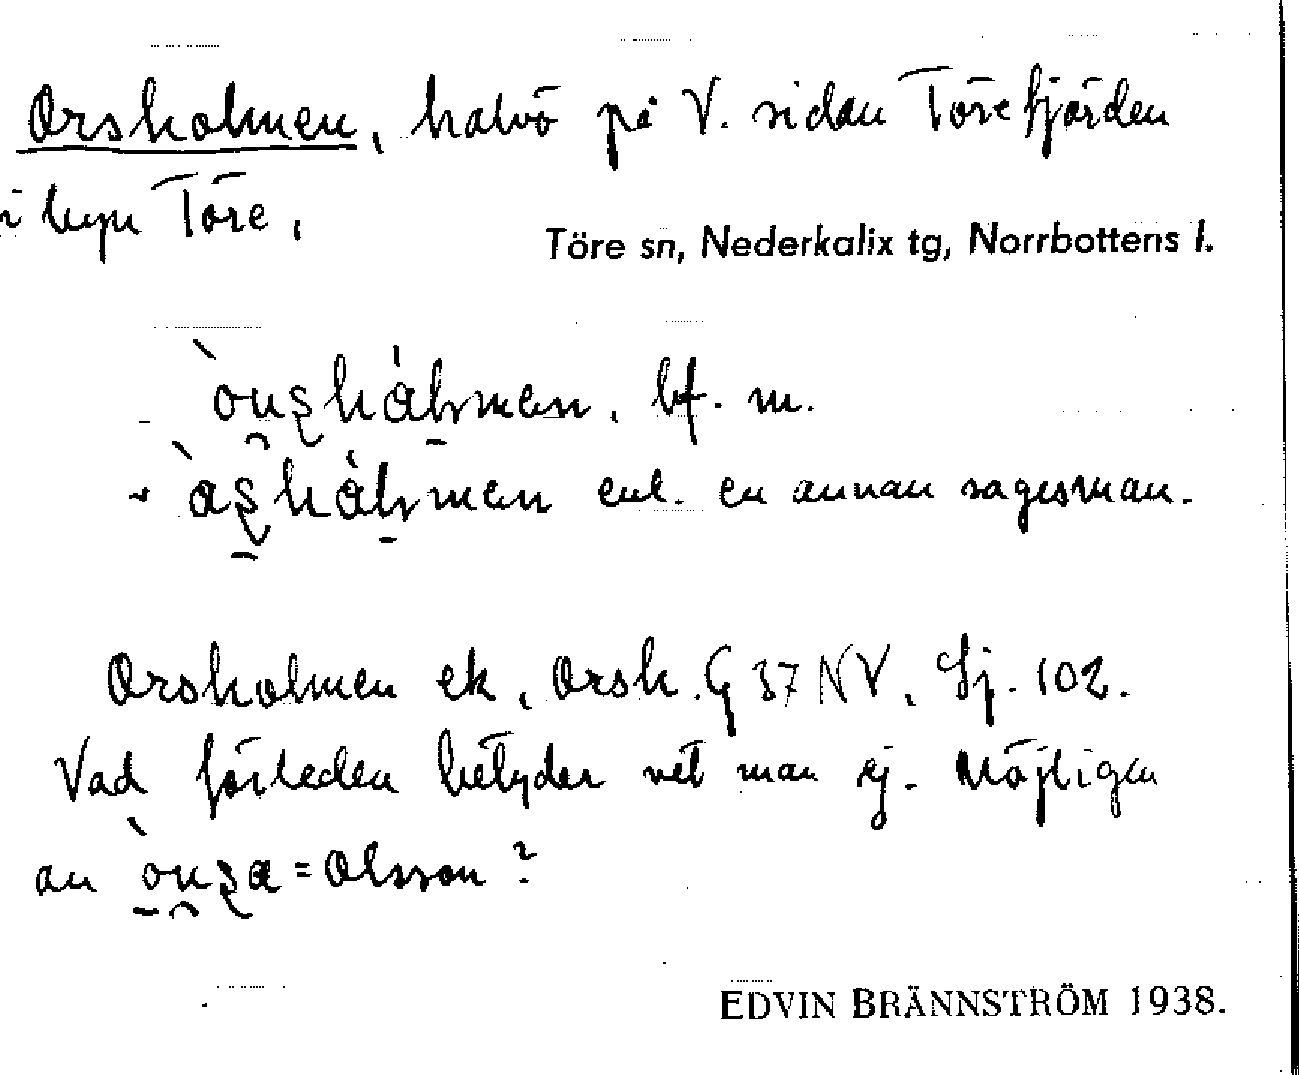 Orsholmen, halvö på V. sidan Törefjärden
i byn Töre.
Töre sn, Nederkalix tg, Norrbottens l.
bf. m.
enl. en annan sagesman.
Orsholmen ek, Orsh. G 37 NV, Sj. 102.
Vad förleden betyder vet man ej. Möjligen
av = Olsson?
EDVIN BRÄNNSTRÖM 1938.